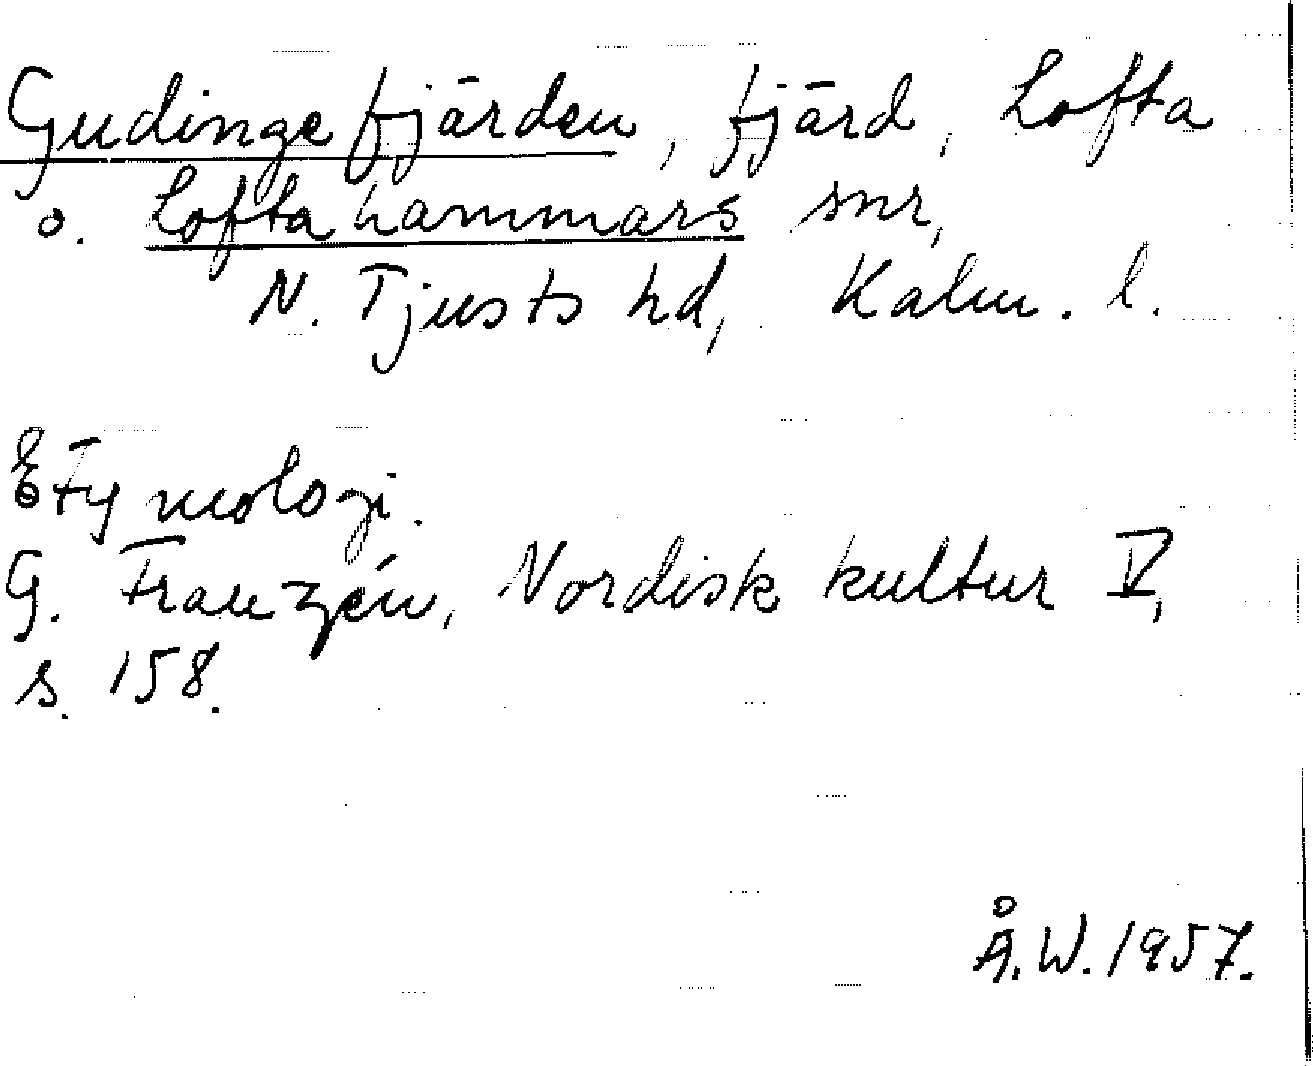 Gudingefjärden, fjärd, Lofta
o. Loftahammars snr,
N. Tjusts hd, Kalm. l.
Etymologi.
G. Franzén, Nordisk kultur V,
s. 158.
Å.W. 1957.